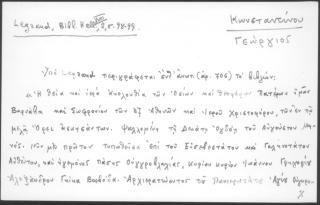 Legrand, Bibl. Hell. XVIII, 2, σ. 98-99.
Κωνσταντίνου
Γεώργιος
Ὑπὸ Legrand περιγράφεται ὑπ' ἀριθ. (ἀρ. 706) τὸ βιβλίον:
« Ἡ θεία καὶ ἱερὰ Ἀκολουθία τῶν Ὁσίων καὶ θεοφόρων Πατέρων ἡμῶν
Βαρνάβα καὶ Σωφρονίου τῶν ἐξ Ἀθηνῶν καὶ Ἱεροῦ Χριστοφόρου, τῶν ἐν τῷ
μελᾷ Ὄρει ἀσκησάντων. Ψαλλομένη τῇ Ὀγδόῃ τοῦ Αὐγούστου Μη-
νός. Νῦν μὲν πρῶτον τυπωθεῖσα ἐπὶ τοῦ Εὐσεβεστάτου καὶ Γαληνοτάτου
Αὐθέντου, καὶ ἡγεμόνος πάσης Οὐγγροβλαχίας, Κυρίου Κυρίου Ἰωάννου Γρηγορίου
Ἀλεξάνδρου Γκίκα Βοεβόδα. Ἀρχιερατεύοντος τοῦ Πανιερωτάτου Ἁγίου